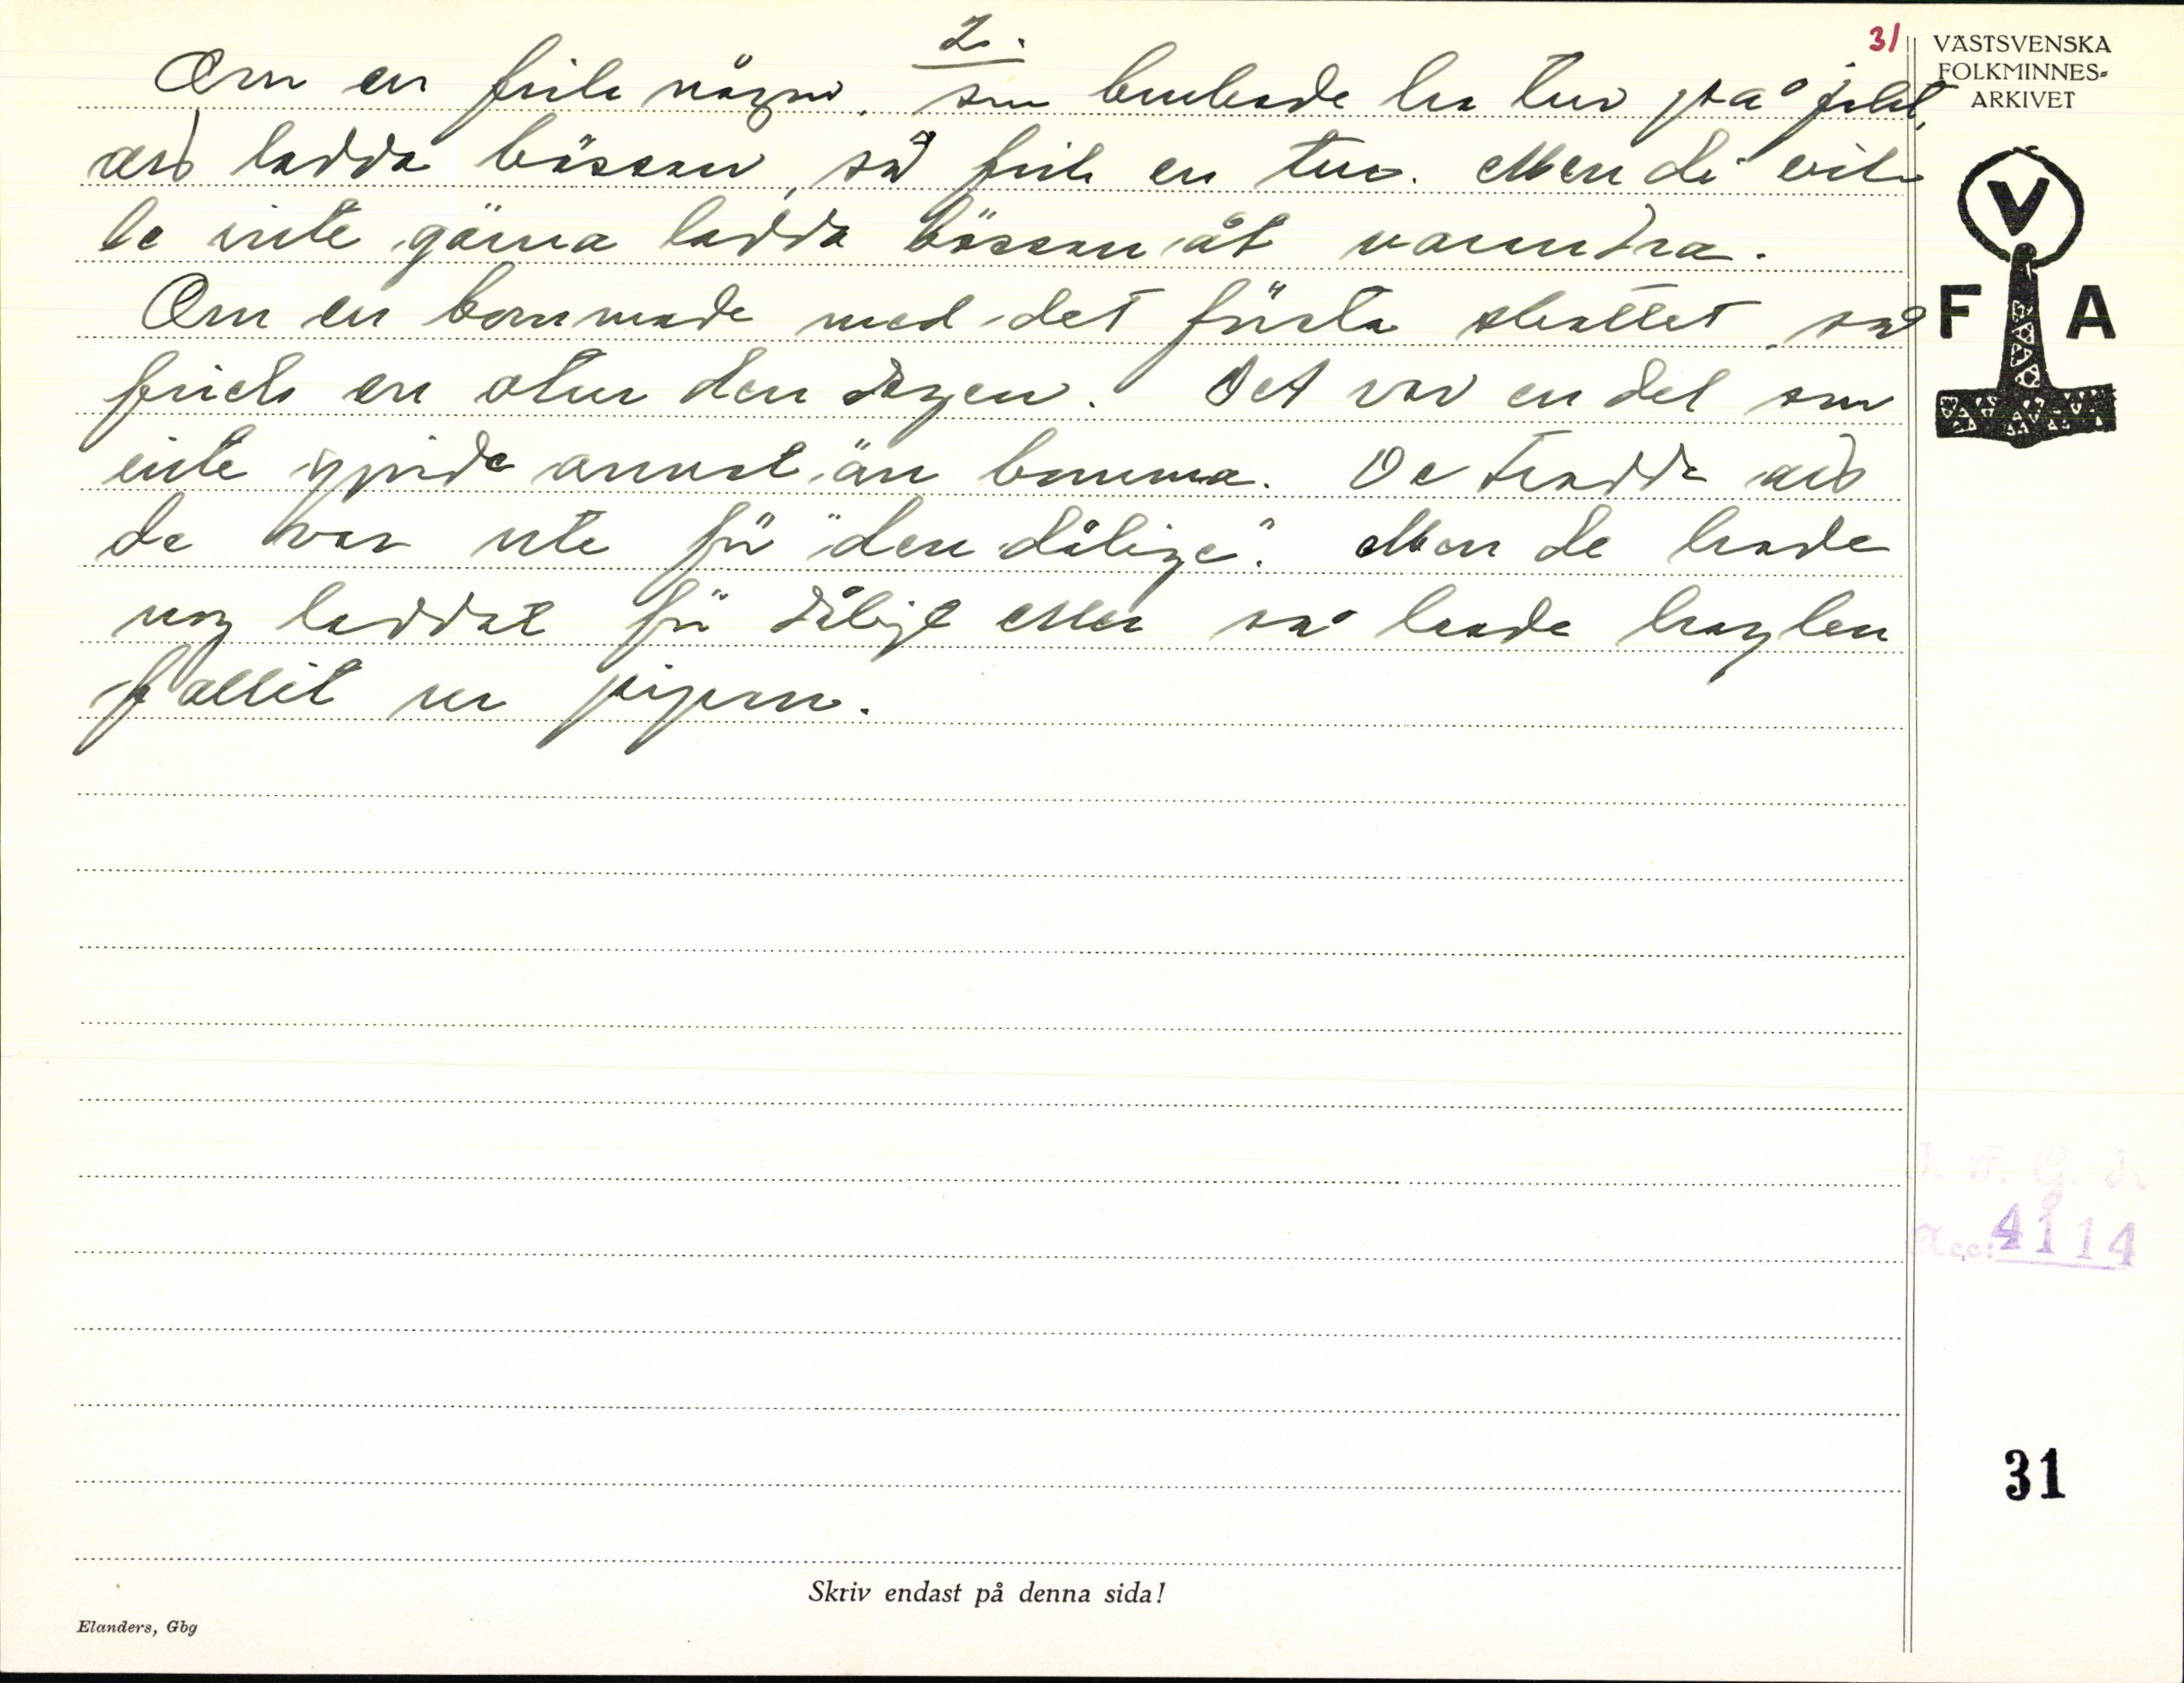 2.
31
VÄSTSVENSKA
FOLKMINNES-
ARKIVET
Om en fick någon, som brukade ha tur på jakt,
att ladda bössan, så fick en tur. Men di vil-
le inte gärna ladda bössan åt varandra.
Om en bommade med det första skottet, så
fick en otur den dagen. Det var en del som
inte gjorde annat än bomma. De trodde att
de var ute för "den dålige". Men de hade
nog laddat för dåligt eller så hade haglen
fallit ur pipan.
V
F A
Acc: 4114
31
Skriv endast på denna sida!
Elanders, Gbg